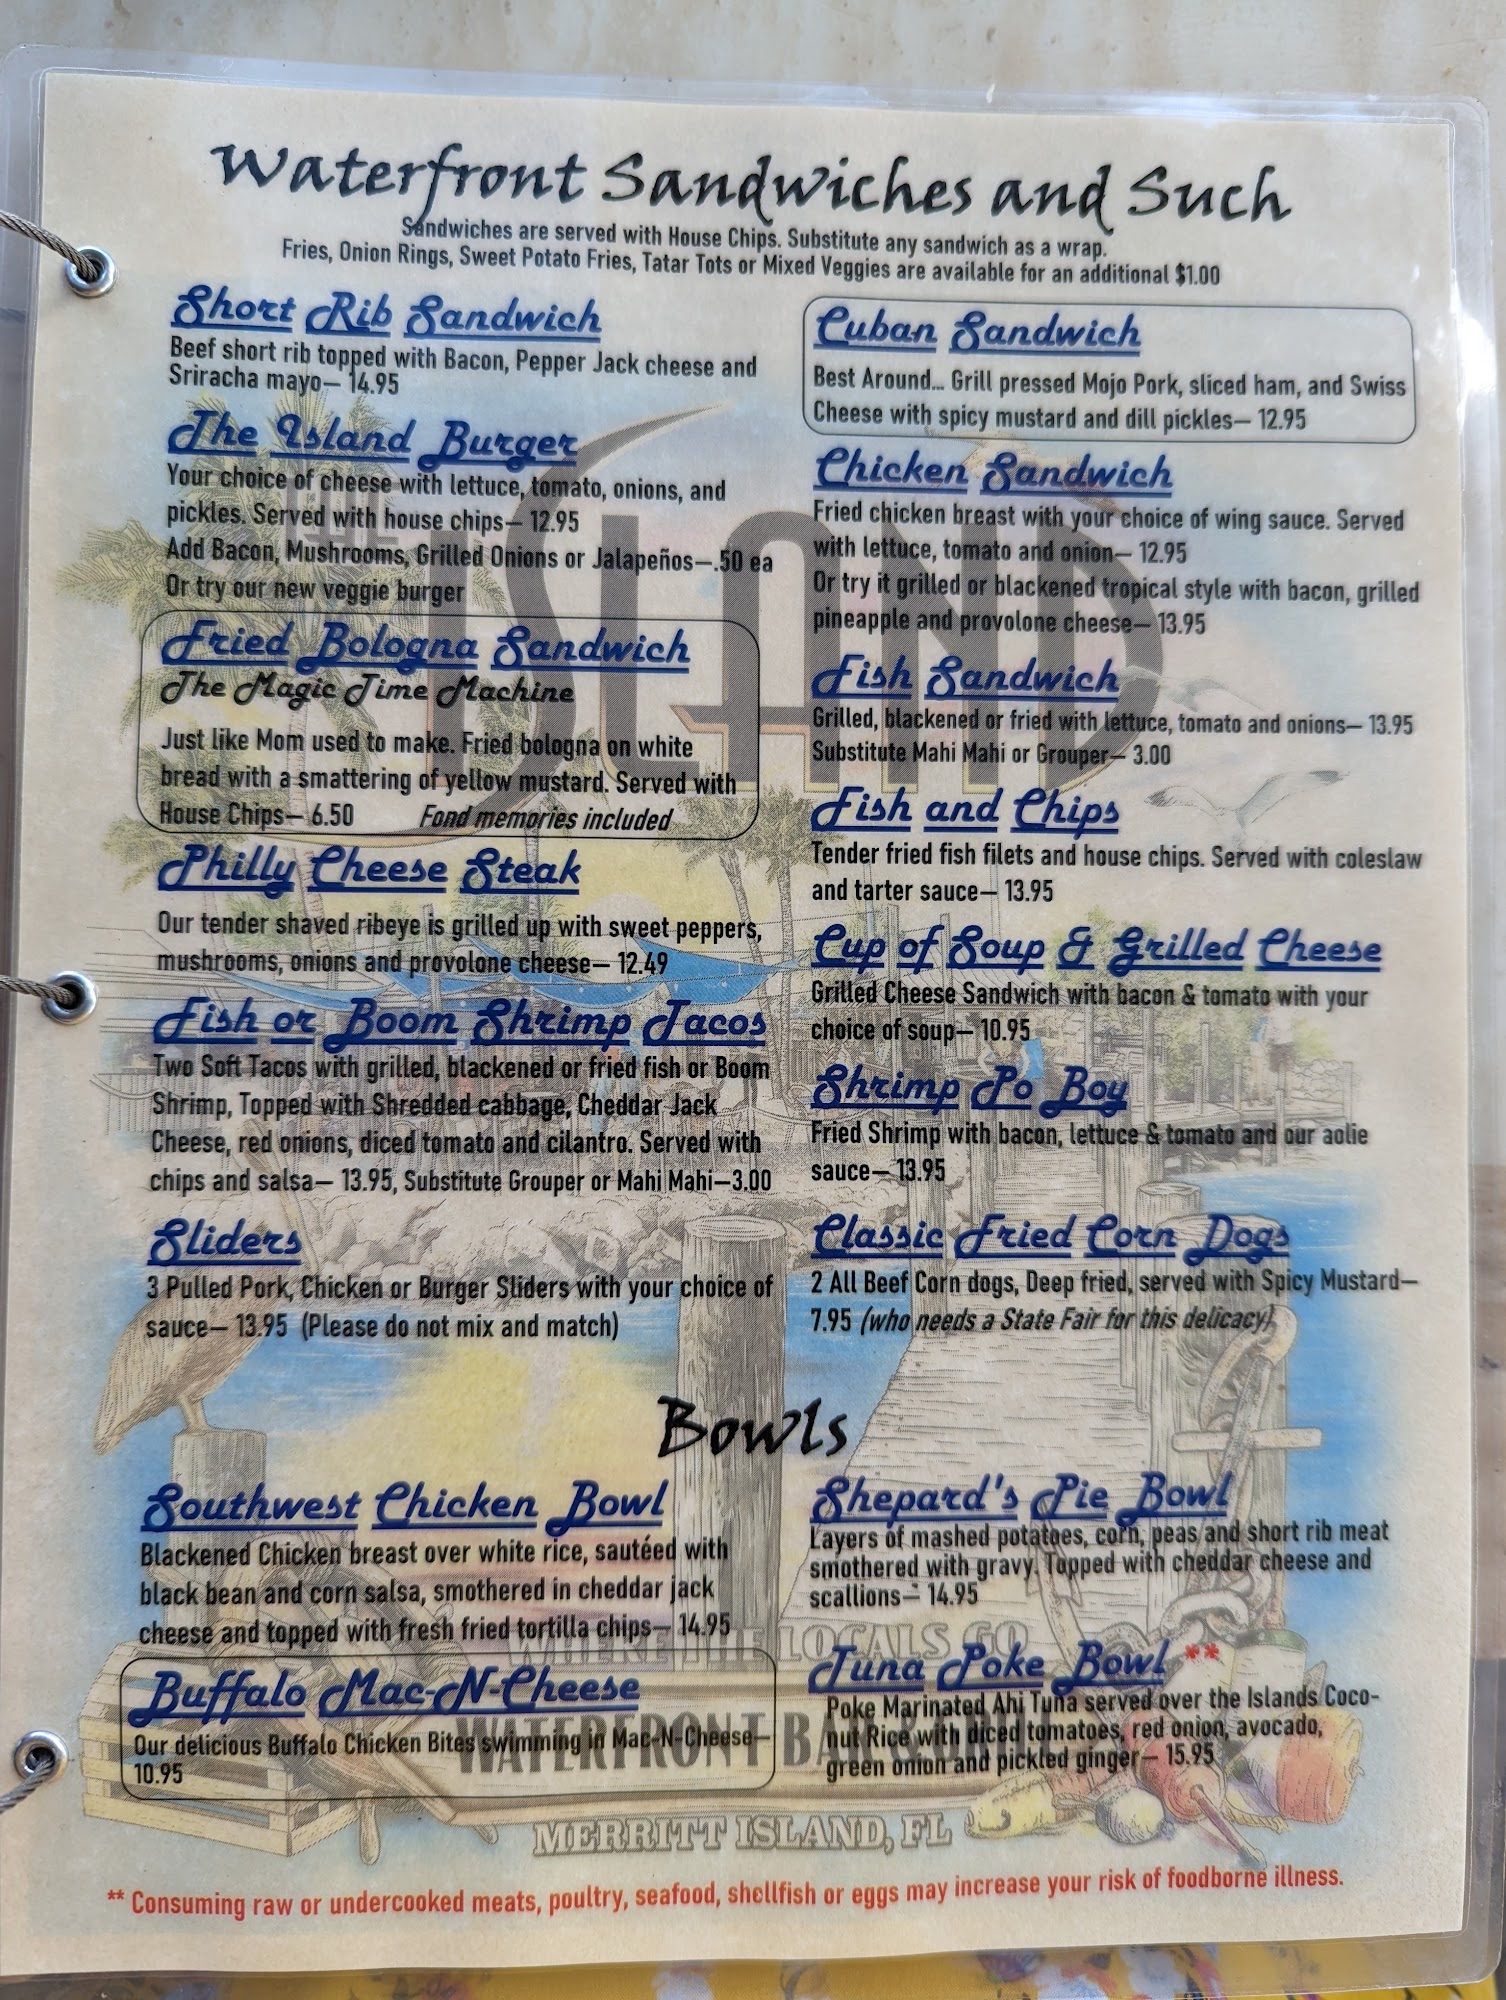 Waterfront Sandwiches and Such
Sandwiches are served with House Chips. Substitute any sandwich as a wrap.
Fries, Onion Rings, Sweet Potato Fries, Tatar Tots or Mixed Veggies are available for an additional $1.00
Short Rib Sandwich
Beef short rib topped with Bacon, Pepper Jack cheese and
Sriracha mayo– 14.95
The Island Burger
Your choice of cheese with lettuce, tomato, onions, and
pickles. Served with house chips– 12.95
Add Bacon, Mushrooms, Grilled Onions or Jalapeños–.50 ea
Or try our new veggie burger
Fried Bologna Sandwich
The Magic Time Machine
Just like Mom used to make. Fried bologna on white
bread with a smattering of yellow mustard. Served with
House Chips– 6.50 Fond memories included
Philly Cheese Steak
Our tender shaved ribeye is grilled up with sweet peppers,
mushrooms, onions and provolone cheese– 12.49
Fish or Boom Shrimp Tacos
Two Soft Tacos with grilled, blackened or fried fish or Boom
Shrimp, Topped with Shredded cabbage, Cheddar Jack
Cheese, red onions, diced tomato and cilantro. Served with
chips and salsa– 13.95, Substitute Grouper or Mahi Mahi–3.00
Sliders
3 Pulled Pork, Chicken or Burger Sliders with your choice of
sauce– 13.95 (Please do not mix and match)
Cuban Sandwich
Best Around... Grill pressed Mojo Pork, sliced ham, and Swiss
Cheese with spicy mustard and dill pickles– 12.95
Chicken Sandwich
Fried chicken breast with your choice of wing sauce. Served
with lettuce, tomato and onion– 12.95
Or try it grilled or blackened tropical style with bacon, grilled
pineapple and provolone cheese– 13.95
Fish Sandwich
Grilled, blackened or fried with lettuce, tomato and onions– 13.95
Substitute Mahi Mahi or Grouper– 3.00
Fish and Chips
Tender fried fish filets and house chips. Served with coleslaw
and tarter sauce– 13.95
Cup of Soup & Grilled Cheese
Grilled Cheese Sandwich with bacon & tomato with your
choice of soup– 10.95
Shrimp Po Boy
Fried Shrimp with bacon, lettuce & tomato and our aolie
sauce– 13.95
Classic Fried Corn Dogs
2 All Beef Corn dogs, Deep fried, served with Spicy Mustard–
7.95 (who needs a State Fair for this delicacy)
Bowls
Southwest Chicken Bowl
Blackened Chicken breast over white rice, sautéed with
black bean and corn salsa, smothered in cheddar jack
cheese and topped with fresh fried tortilla chips– 14.95
Buffalo Mac-N-Cheese
Our delicious Buffalo Chicken Bites swimming in Mac-N-Cheese–
10.95
Shepard's Pie Bowl
Layers of mashed potatoes, corn, peas and short rib meat
smothered with gravy. Topped with cheddar cheese and
scallions– 14.95
Tuna Poke Bowl **
Poke Marinated Ahi Tuna served over the Islands Coco-
nut Rice with diced tomatoes, red onion, avocado,
green onion and pickled ginger– 15.95
THE
ISLAND
WHERE THE LOCALS GO
WATERFRONT
MERRITT ISLAND, FL
** Consuming raw or undercooked meats, poultry, seafood, shellfish or eggs may increase your risk of foodborne illness.